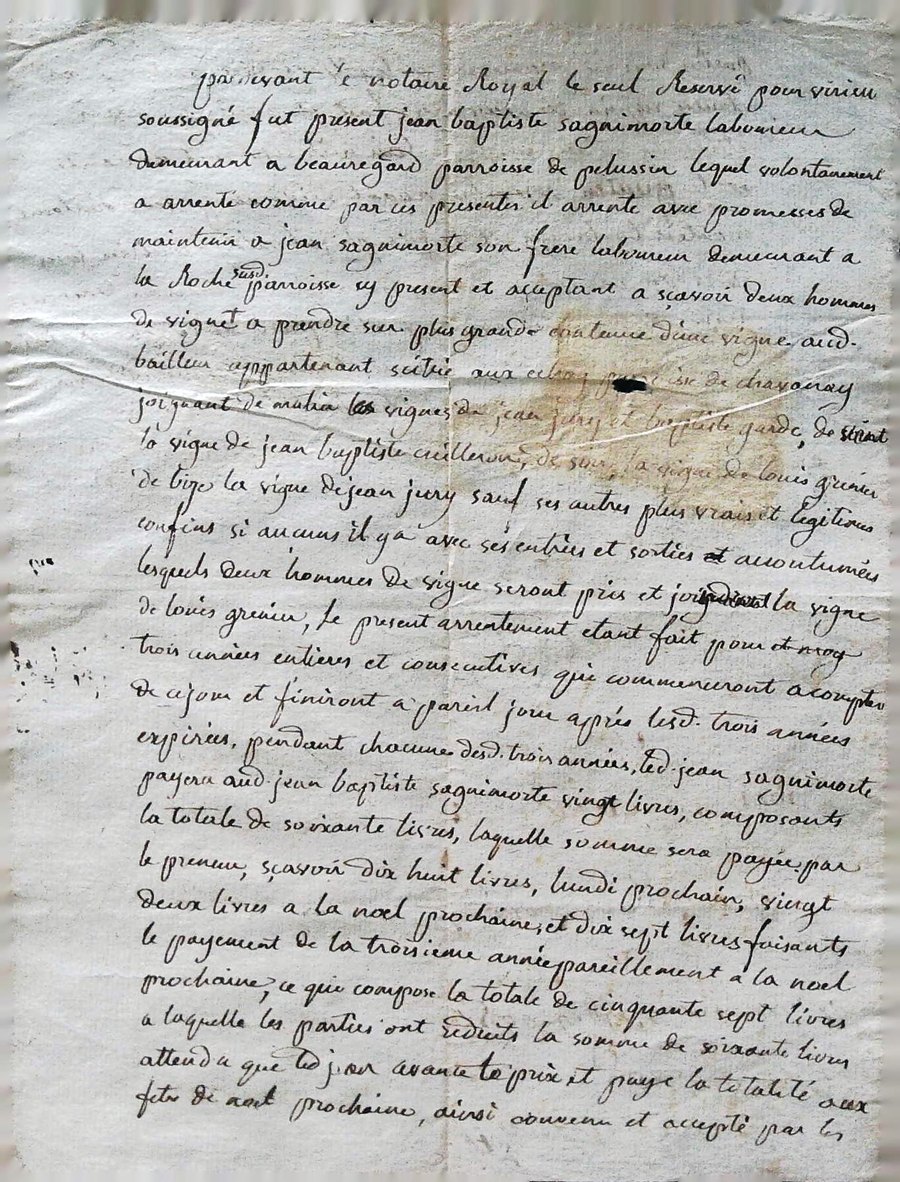 pardevant le notaire Royal le seul Reservé pour virieu
soussigné fut present jean baptiste sagnimorte laboureur
demeurant a beauregard parroisse de pelussin lequel volontairement
a arrenté comme par ces presentes il arrente avec promesses de
maintenir a jean sagnimorte son frere laboureur demeurant a
la Roche susd. parroisse sy present et acceptant a sçavoir deux hommes
de vigne a prendre sur plus grande contenue d'une vigne aud.
bailleur appartenant scitüe aux de chavanay
joignant de matin les vignes de jean jury et baptiste garde, de
la vigne de jean baptiste cuilleron, de soir, la vigne de louis grenier
de bize la vigne de jean jury sauf ses autres plus vrais et legitimes
confins si aucuns il y a avec ses entrées et sorties accoutumées
lesquels deux hommes de vigne seront pris et la vigne
de loüis grenier, Le present arrentement etant fait pour
trois années entieres et consecutives qui commenceront a compter
de ce jour et finiront a pareil jour aprés lesd. trois années
expirées, pendant chacune desd. trois années, led. jean sagnimorte
payera aud. jean baptiste sagnimorte vingt livres, composants
la totale de soixante livres, laquelle somme sera payée par
le preneur, sçavoir dix huit livres, lundi prochain, vingt
deux livres a la noel prochaine, et dix sept livres faisants
le payement de la troisieme année pareillement a la noel
prochaine, ce qui compose la totale de cinquante sept livres
a laquelle les parties ont reduits la somme de soixante livres
attendu que led jean avance le prix et paye la totalité aux
fetes de noel prochaine, ainsi convenu et accepté par les